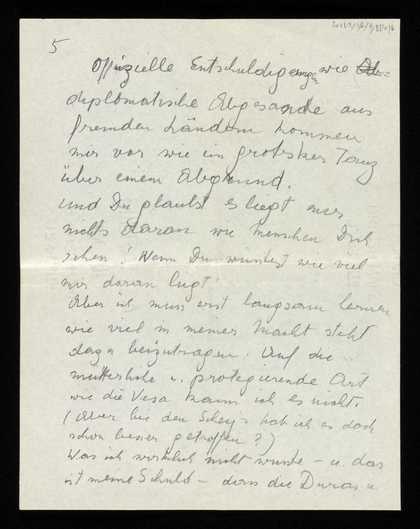 5
Offizielle Entschuldigungen wie
diplomatische Abgesandte aus
fremden Ländern kommen
mir vor wie ein grotesker Tanz
über einem Abgrund.
Und Du glaubst es liegt mir
nichts daran wie Menschen Dich
sehen! Wenn Du wüsstest wie viel
mir daran liegt
Aber ich muss erst langsam lernen
wie viel in meiner Macht steht
dazu beizutragen. Auf die
mütterliche u. protegierende Art
wie die Vesa kann ich es nicht.
(Aber bei den Schey's hab ich es doch
schon besser getroffen?)
Was ich wirklich nicht wusste – u. das
ist meine Schuld – dass die u.